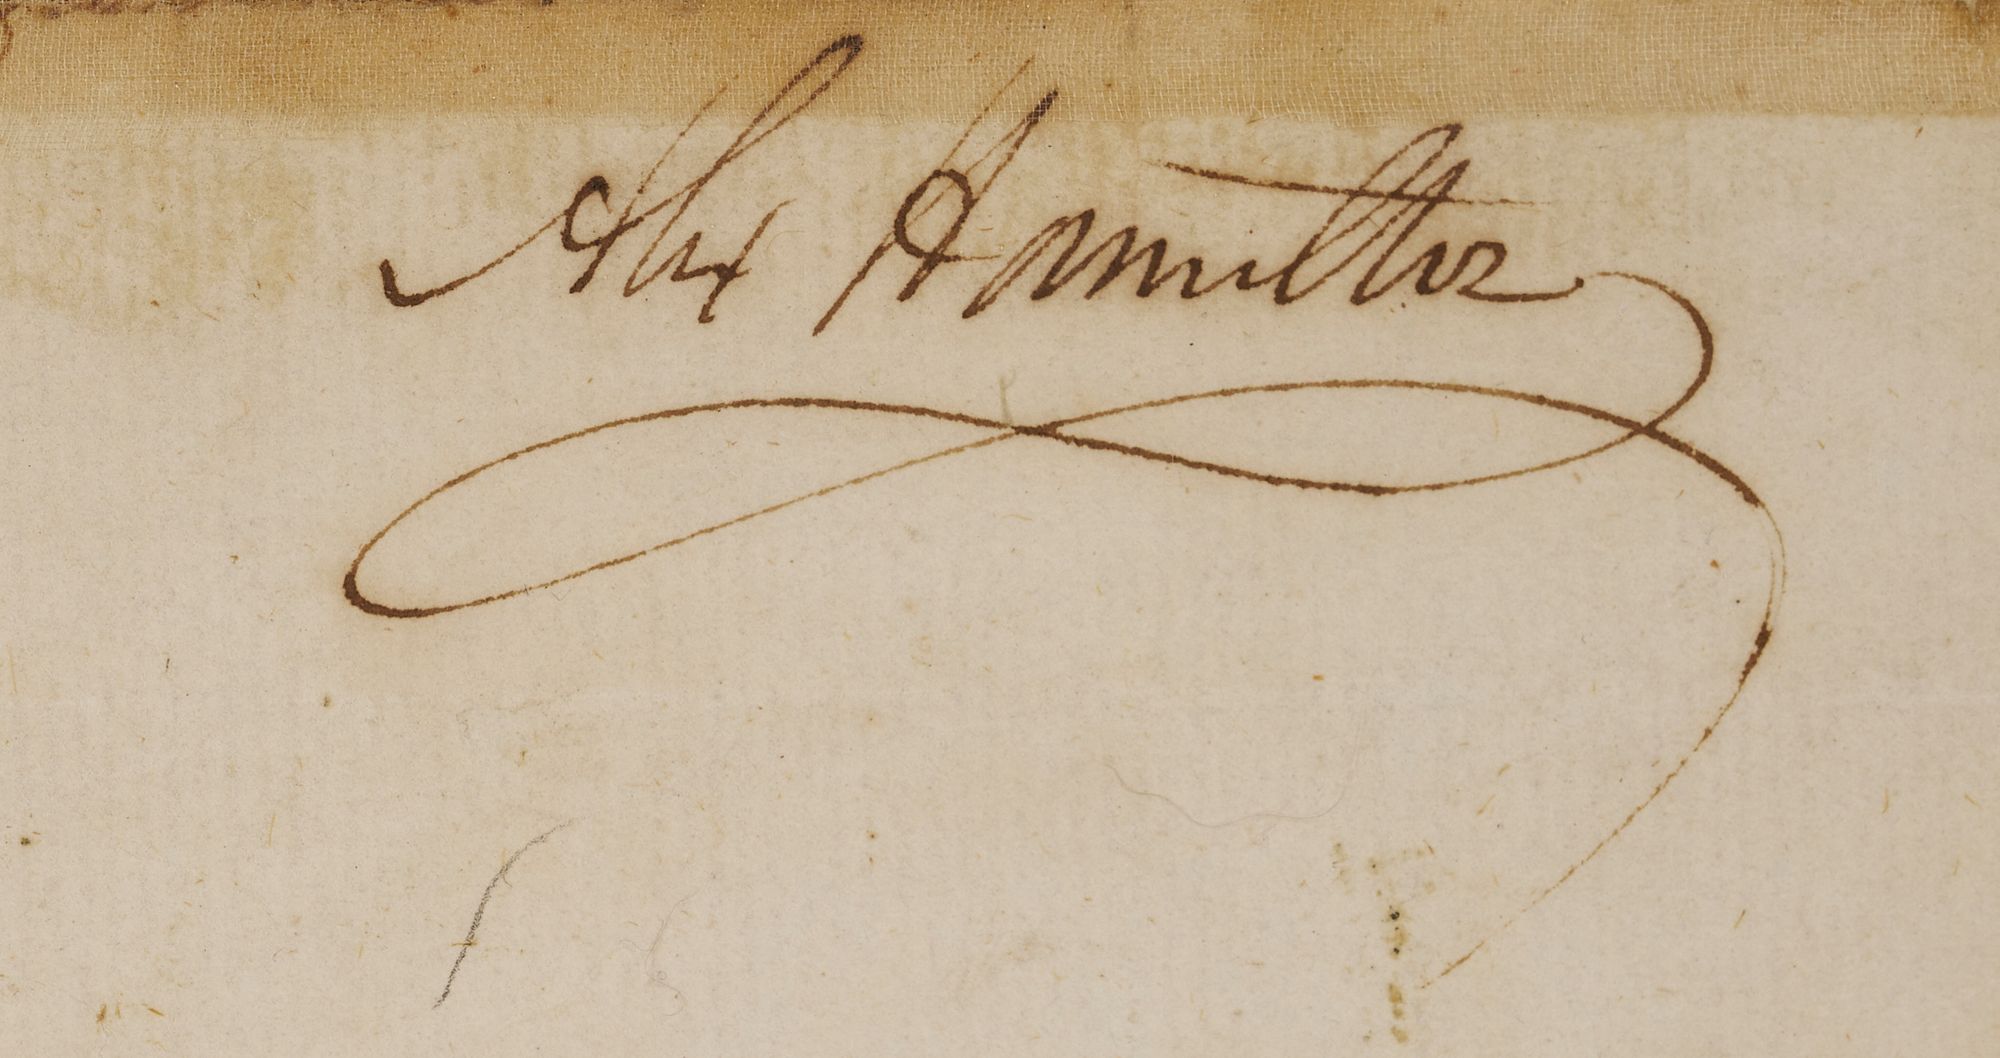 Alex Hamilton